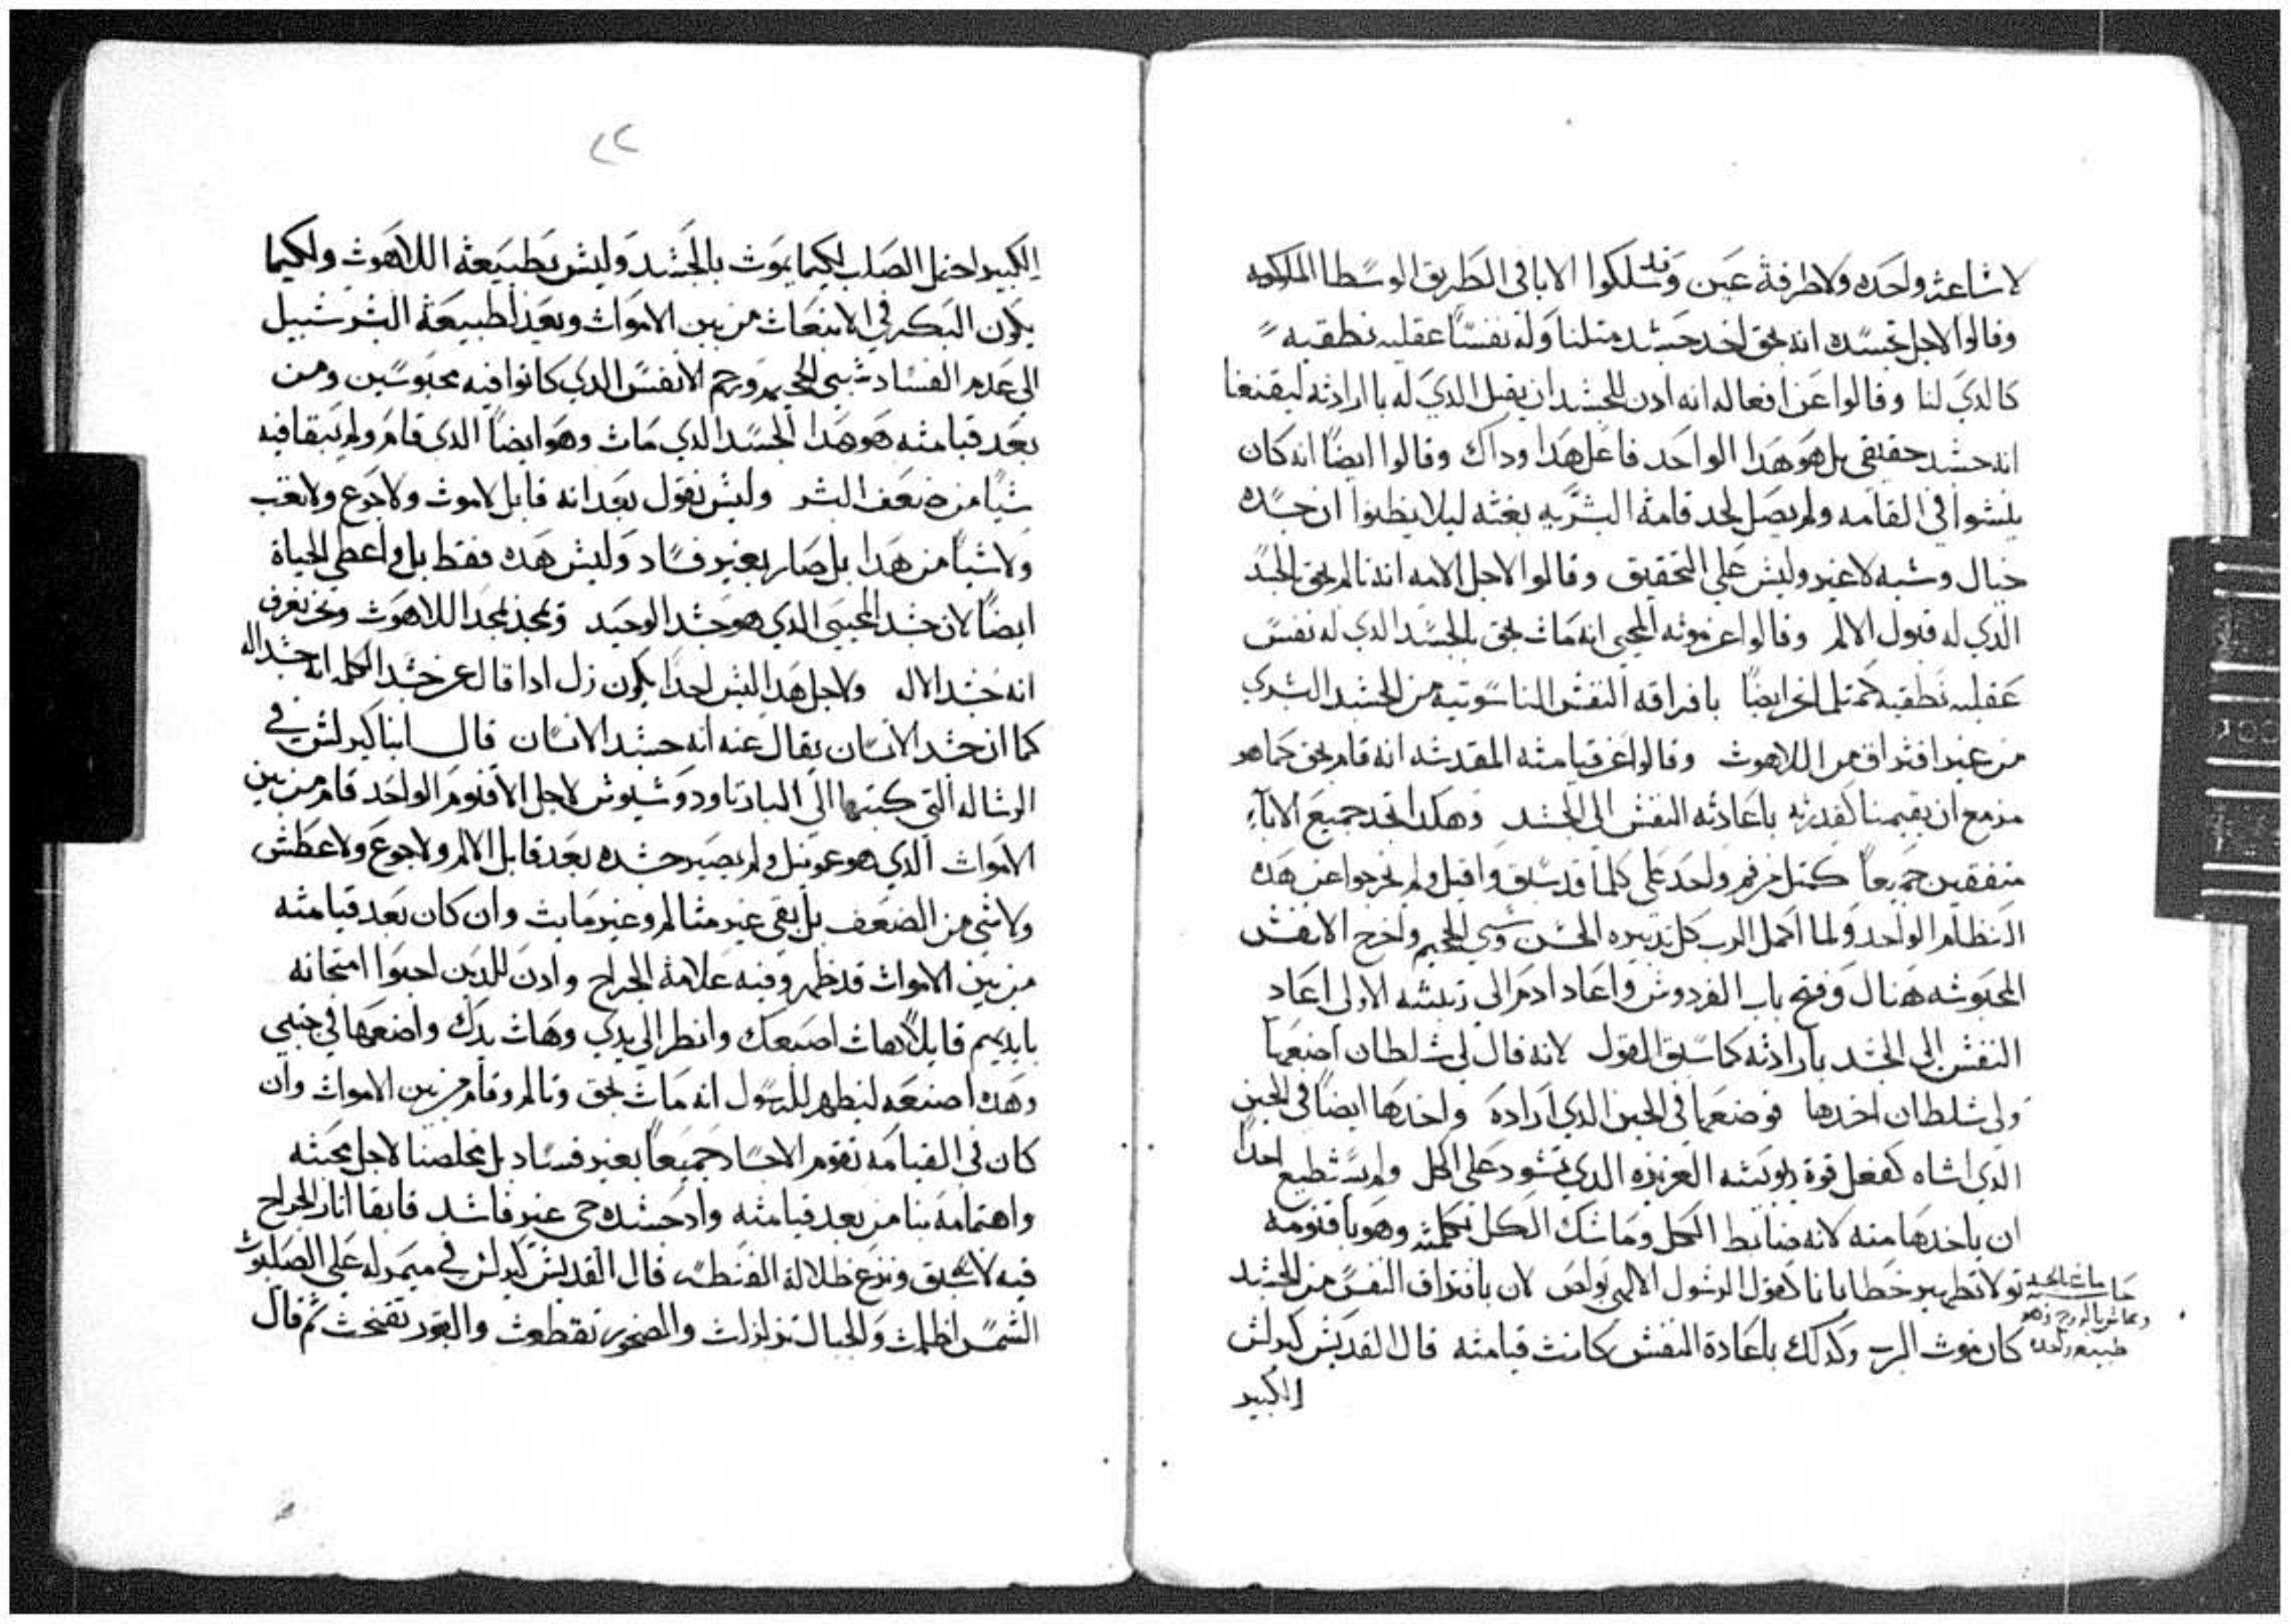 لا ساعه واحده ولا طرفة عين وقد سلكوا الابا في الطريق الوسطا الملوكيه
وقالوا لاجل تجسده انه بحق اخد جسد متلنا وله نفسا عقليه نطقيه
كالدي لنا وقالوا عن افعاله انه ادن للجسد ان يقبل الدي له باارادته ليقنعنا
انه جسد حقيقي بل هو هدا الواحد فاعل هدا وداك وقالوا ايضا انه كان
ينشوا في القامه ولم يصل لحد قامة البشريه بغته ليلا يظنوا ان جسده
خيال وشبه لا غير وليس علي التحقيق وقالوا لاجل الامه انه تالم بحق بالجسد
الدي له قبول الالم وقالوا عن موته المحيي انه مات بحق بالجسد الدي له نفس
عقليه نطقيه كمتلنا نحن ايضا بافراقه النفس الناسوتيه من الجسد البشري
من غير افتراق من اللاهوت وقالوا عن قيامته المقدسه انه قام بحق كما هو
مزمع ان يقيمنا كقدرته باعادته النفس الي الجسد وهكدا نجد جميع الابآء
متفقين جميعا كمتل من فم واحد علي كلما قد سبق واقبل ولم يخرجوا عن هده
النظام الواحد ولما اكمل الرب كل تدبيره الحسن وسبي الجحيم واخرج الانفس
المحبوسه هناك وفتح باب الفردوس واعاد ادم الي رتبته الاولي اعاد
النفس الي الجسد بارادته كما سبق القول لانه قال لي سلطان اضعها
ولي سلطان اخدها فوضعها في الحين الدي اراده واخدها ايضا في الحين
الدي اشاه كفعل قوة ربوبيته العزيزه الدي تسود علي الكل ولم يستطيع احدا
ان ياخدها منه لانه ضابط الكل وماسك الكل بكلمته وهو باقنومه
تولا تطهير خطايانا كقول الرسول الالهي بولص لان بافتراق النفس من الجسد
كان موت الرب وكدلك باعادة النفس كانت قيامته قال القديس كيرلس
الكبير
مات بالجسد
وعاش بالروح وهو
طبيعه واحده
٢٢
الكبير احتمل الصلب لكيما يموت بالجسد وليس بطبيعة اللاهوت ولكيما
يكون البكر في الانبعاث من بين الاموات ويعد لطبيعة البشر سبيل
الي عدم الفساد سبي الجحيم ورحم الانفس الدي كانوا فيه محبوسين ومن
بعد قيامته هو هدا الجسد الدي مات وهو ايضا الدي قام ولم يبقا فيه
شيا من ضعف البشر وليس نقول بعد انه قابل لاموت ولا جوع ولا تعب
ولا شيا من هدا بل صار بغير فساد وليس هده فقط بل واعطي الحياة
ايضا لان جسد المحيي الدي هو جسد الوحيد وتمجد بمجد اللاهوت ونحن نعرف
انه جسد الاله ولاجل هدا ليس احدا يكون زل ادا قال عن جسد الكلمه انه جسد اله
كما ان جسد الانسان يقال عنه انه جسد الانسان قال ابنا كيرلس في
الرساله التي كتبها الي البار تاودوسيوس لاجل الاقنوم الواحد قام من بين
الاموات الدي هو عمونيل ولم يصير جسده بعد قابل الالم ولا جوع ولا عطش
ولا شي من الضعف بل بقي غير متالم وغير مايت وان كان بعد قيامته
من بين الاموات قد ظهر وفيه علامة الجراح وادن للدين احبوا امتحانه
بايديهم قايلا هات اصبعك وانظر الي يدي وهات يدك واضعها في جنبي
وهده اصنعه ليظهر للرسول انه مات بحق وتالم وقام من بين الاموات وان
كان في القيامه تقوم الاجساد جميعا بغير فساد بل مخلصنا لاجل محبته
واهتمامه بنا من بعد قيامته واد جسده حي غير فاسد فابقا اثار الجراح
فيه لاسبق ونزع ظلالة القنطه قال القديس كيرلس في ميمر له علي الصلبوت
الشمس اظلمت والجبال تزلزلت والصخور تقطعت والقبور تفتحت ثم قال